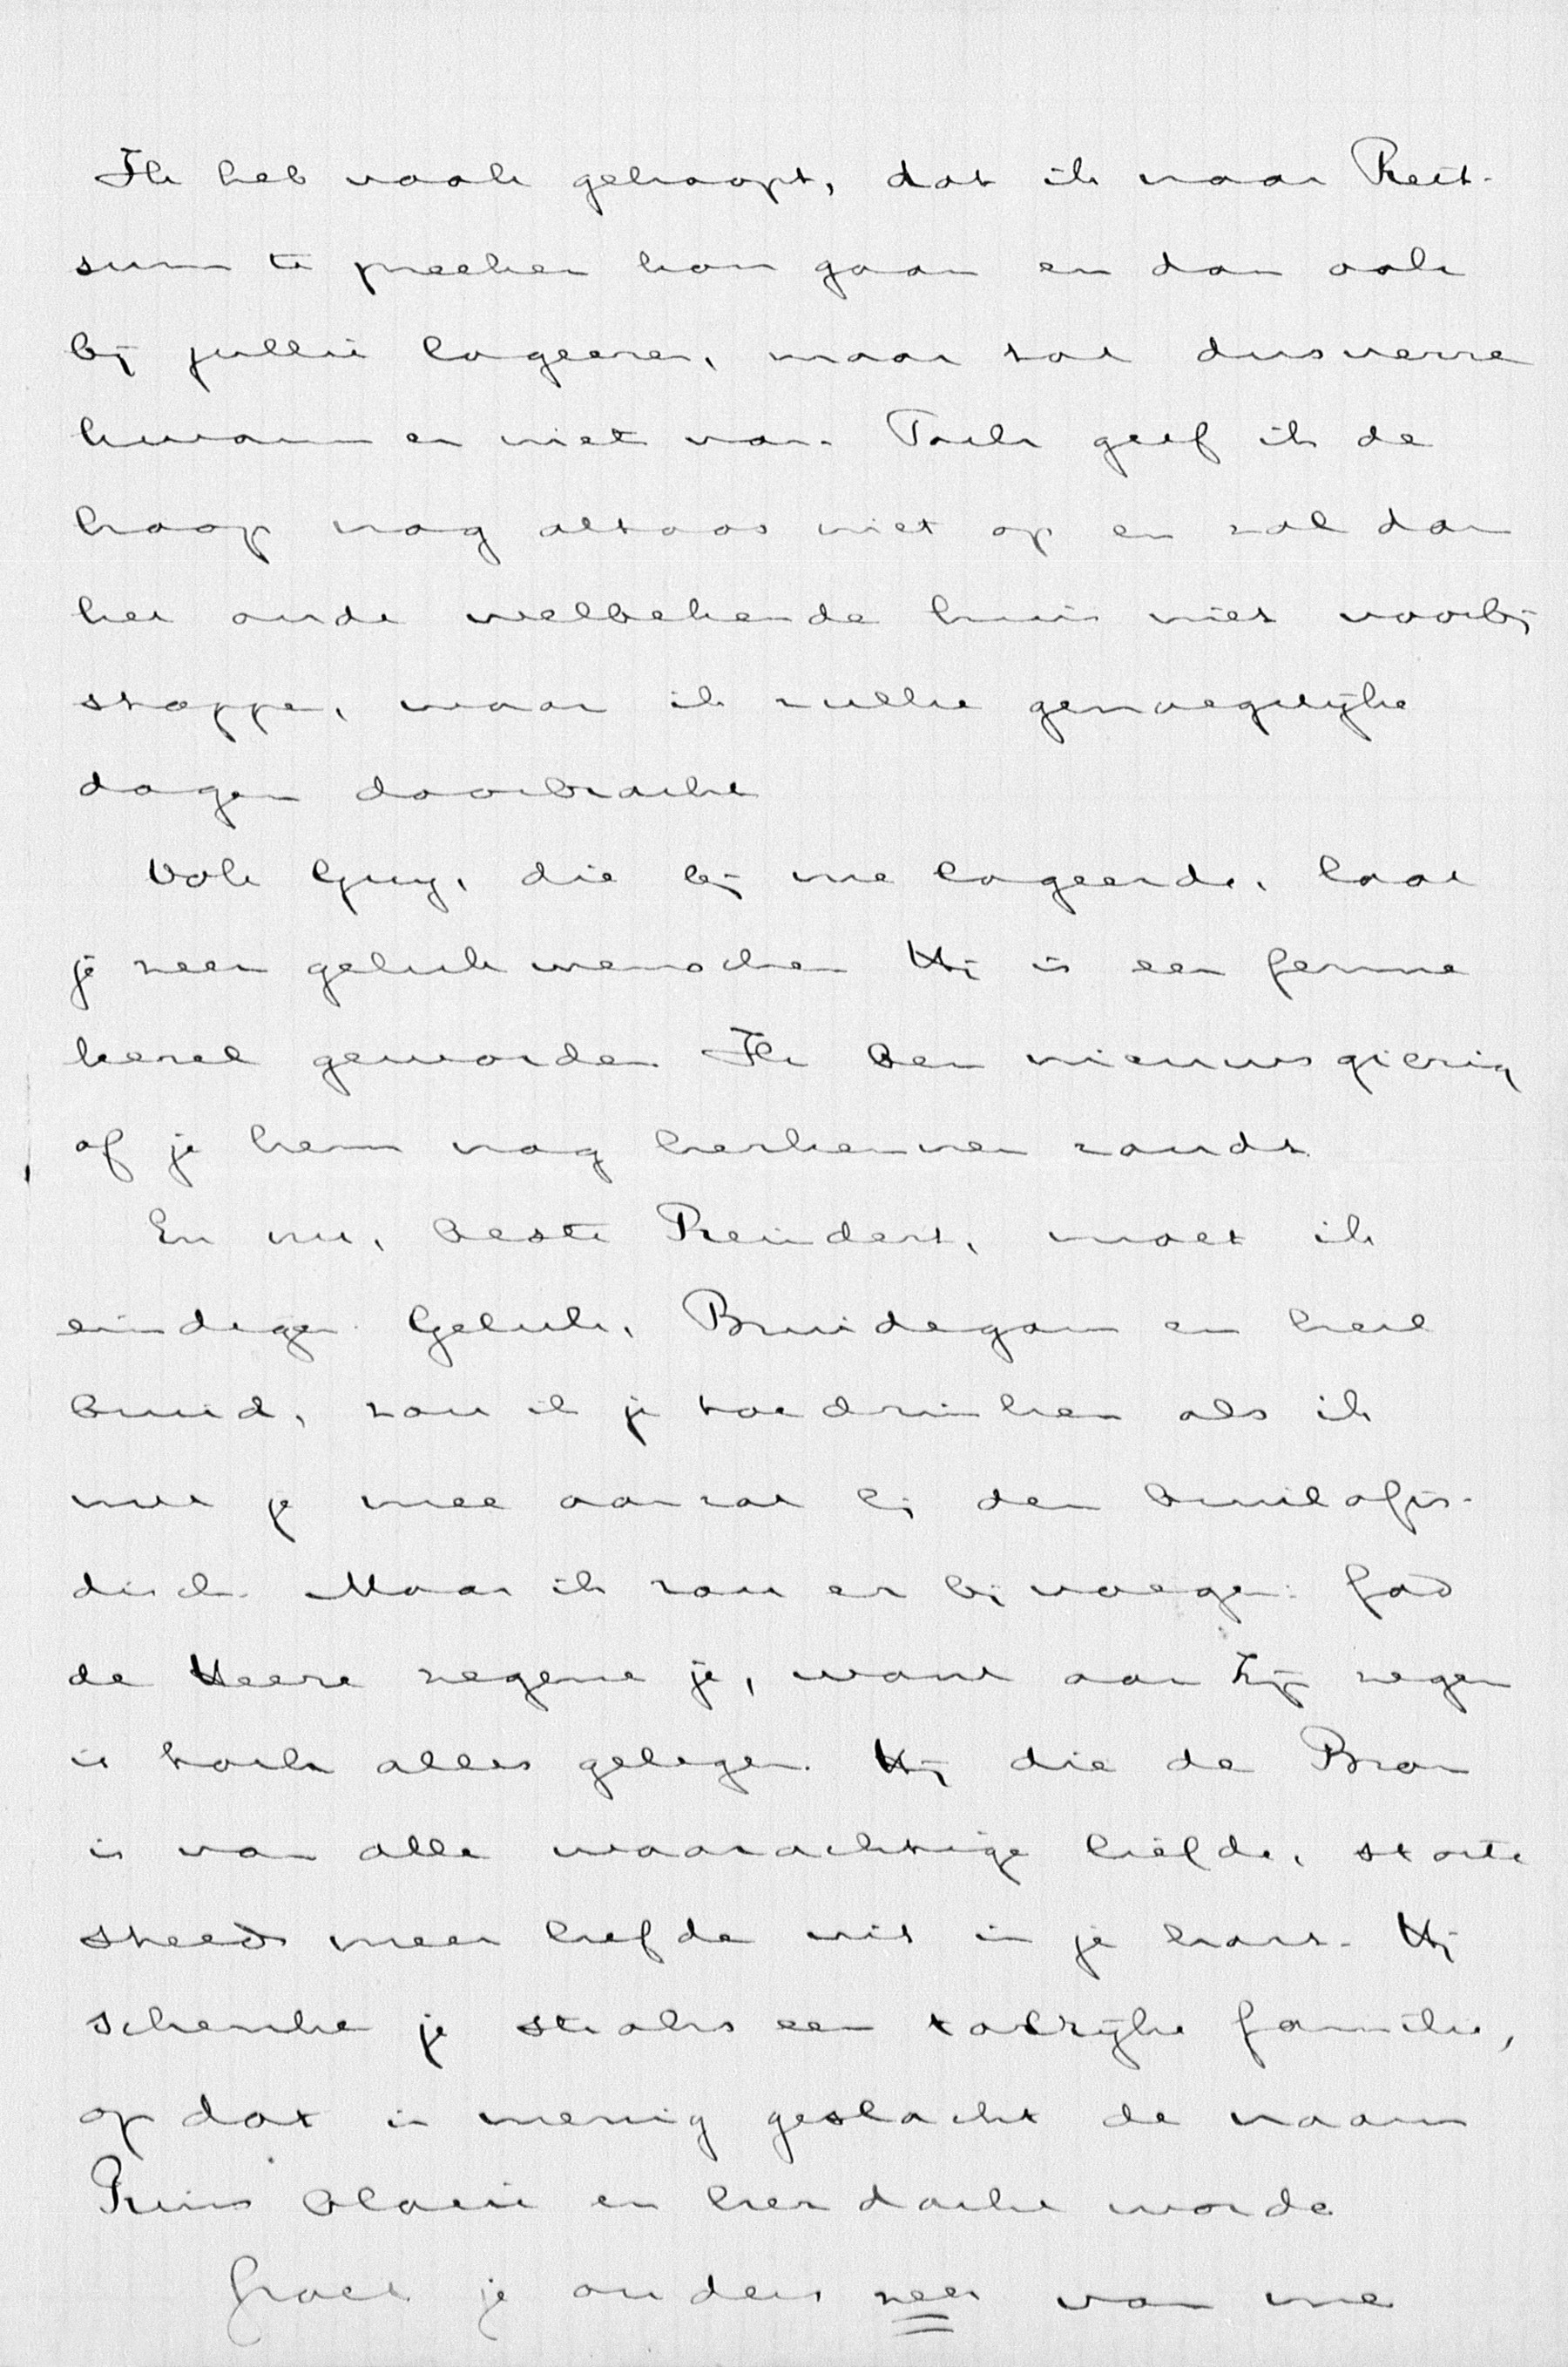 Ik heb vaak gehoopt, dat ik naar Reit-
sum te preeken kon gaan en dan ook
bij jullie logeeren, maar tot dusverre
kwam er niet van. Toch geef ik de
hoop nog altoos niet op en zal dan
het oude welbekende huis niet voorbij
stappen, waar ik zulke genoegelijke
dagen doorbracht
Ook Guy, die bij me logeerde, laat
je zeer gelukwenschen Hij is een ferme
kerel geworden Ik ben nieuwsgierig
of je hem nog herkennen zoudt.
En nu, beste Reindert, moet ik
eindigen. Geluk, Bruidegom en heil
bruid, zou ik je toedrinken als ik
met je mee aanzat bij den bruilofts-
disch. Maar ik zou er bij voegen: God
de Heere zegene je, want aan Zijn zegen
is toch alles gelegen. Hij die de Bron
is van alle waarachtige liefde, storte
steeds meer liefde uit in je hart. Hij
schenke je straks een talrijke familie,
opdat in menig geslacht de naam
Reins bloeie en herdacht worde
Groet je ouders zeer van me